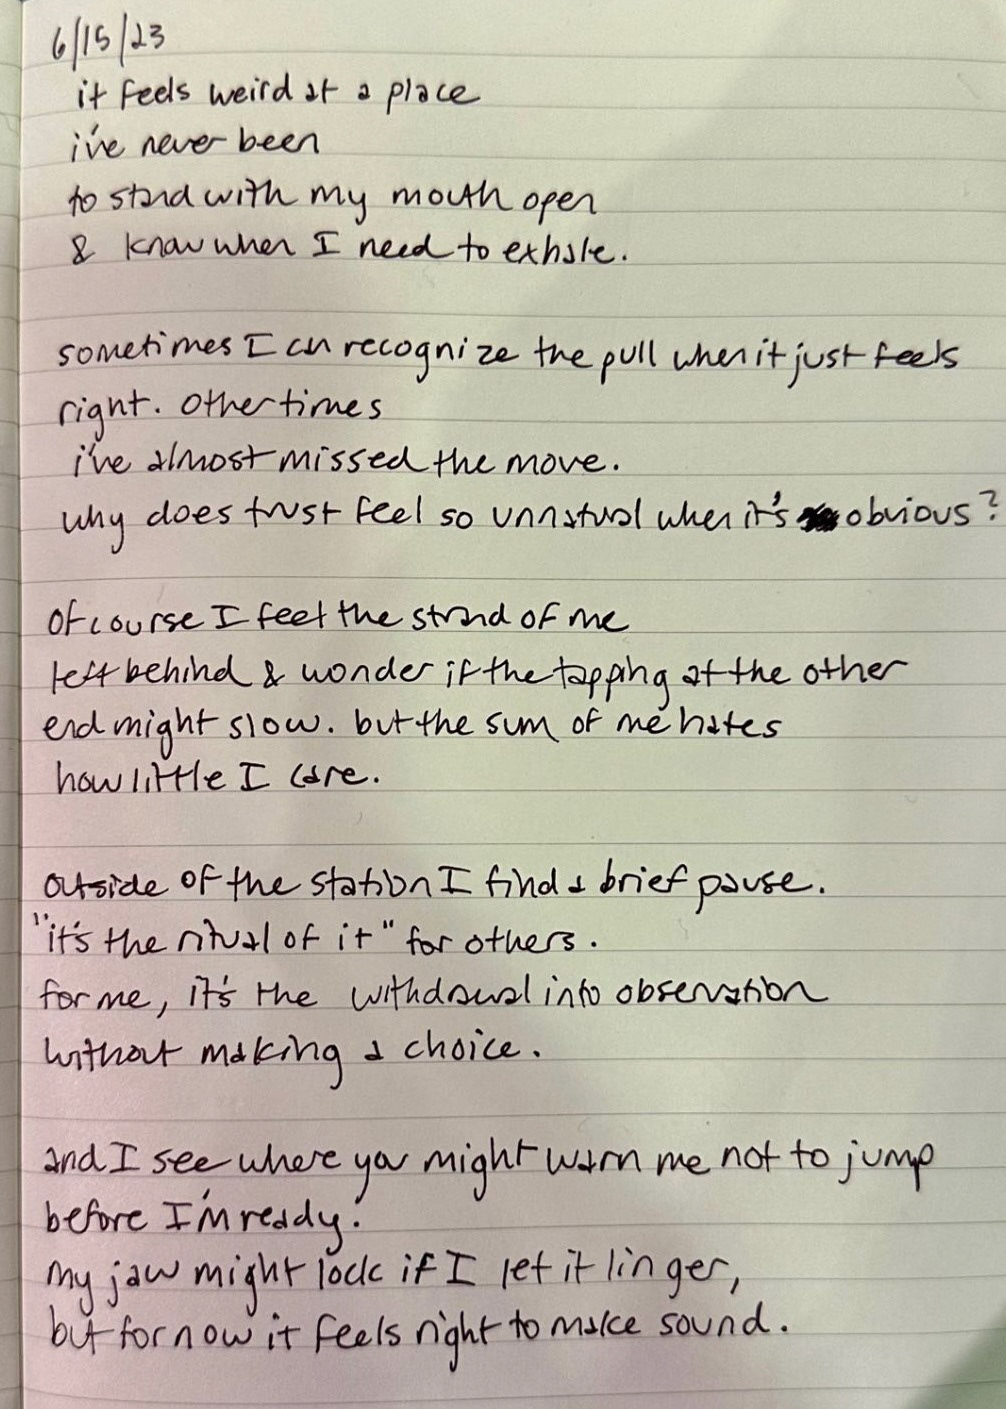 6/15/23
it feels weird at a place
i've never been
to stand with my mouth open
& know when I need to exhale.
sometimes I can recognize the pull when it just feels
right. other times
i've almost missed the move.
why does trust feel so unnatural when it's obvious?
of course I feel the strand of me
left behind & wonder if the tapping at the other
end might slow. but the sum of me hates
how little I care.
outside of the station I find a brief pause.
"it's the ritual of it" for others.
for me, it's the withdrawal into observation
without making a choice.
and I see where you might warn me not to jump
before I'm ready.
my jaw might lock if I let it linger,
but for now it feels right to make sound.